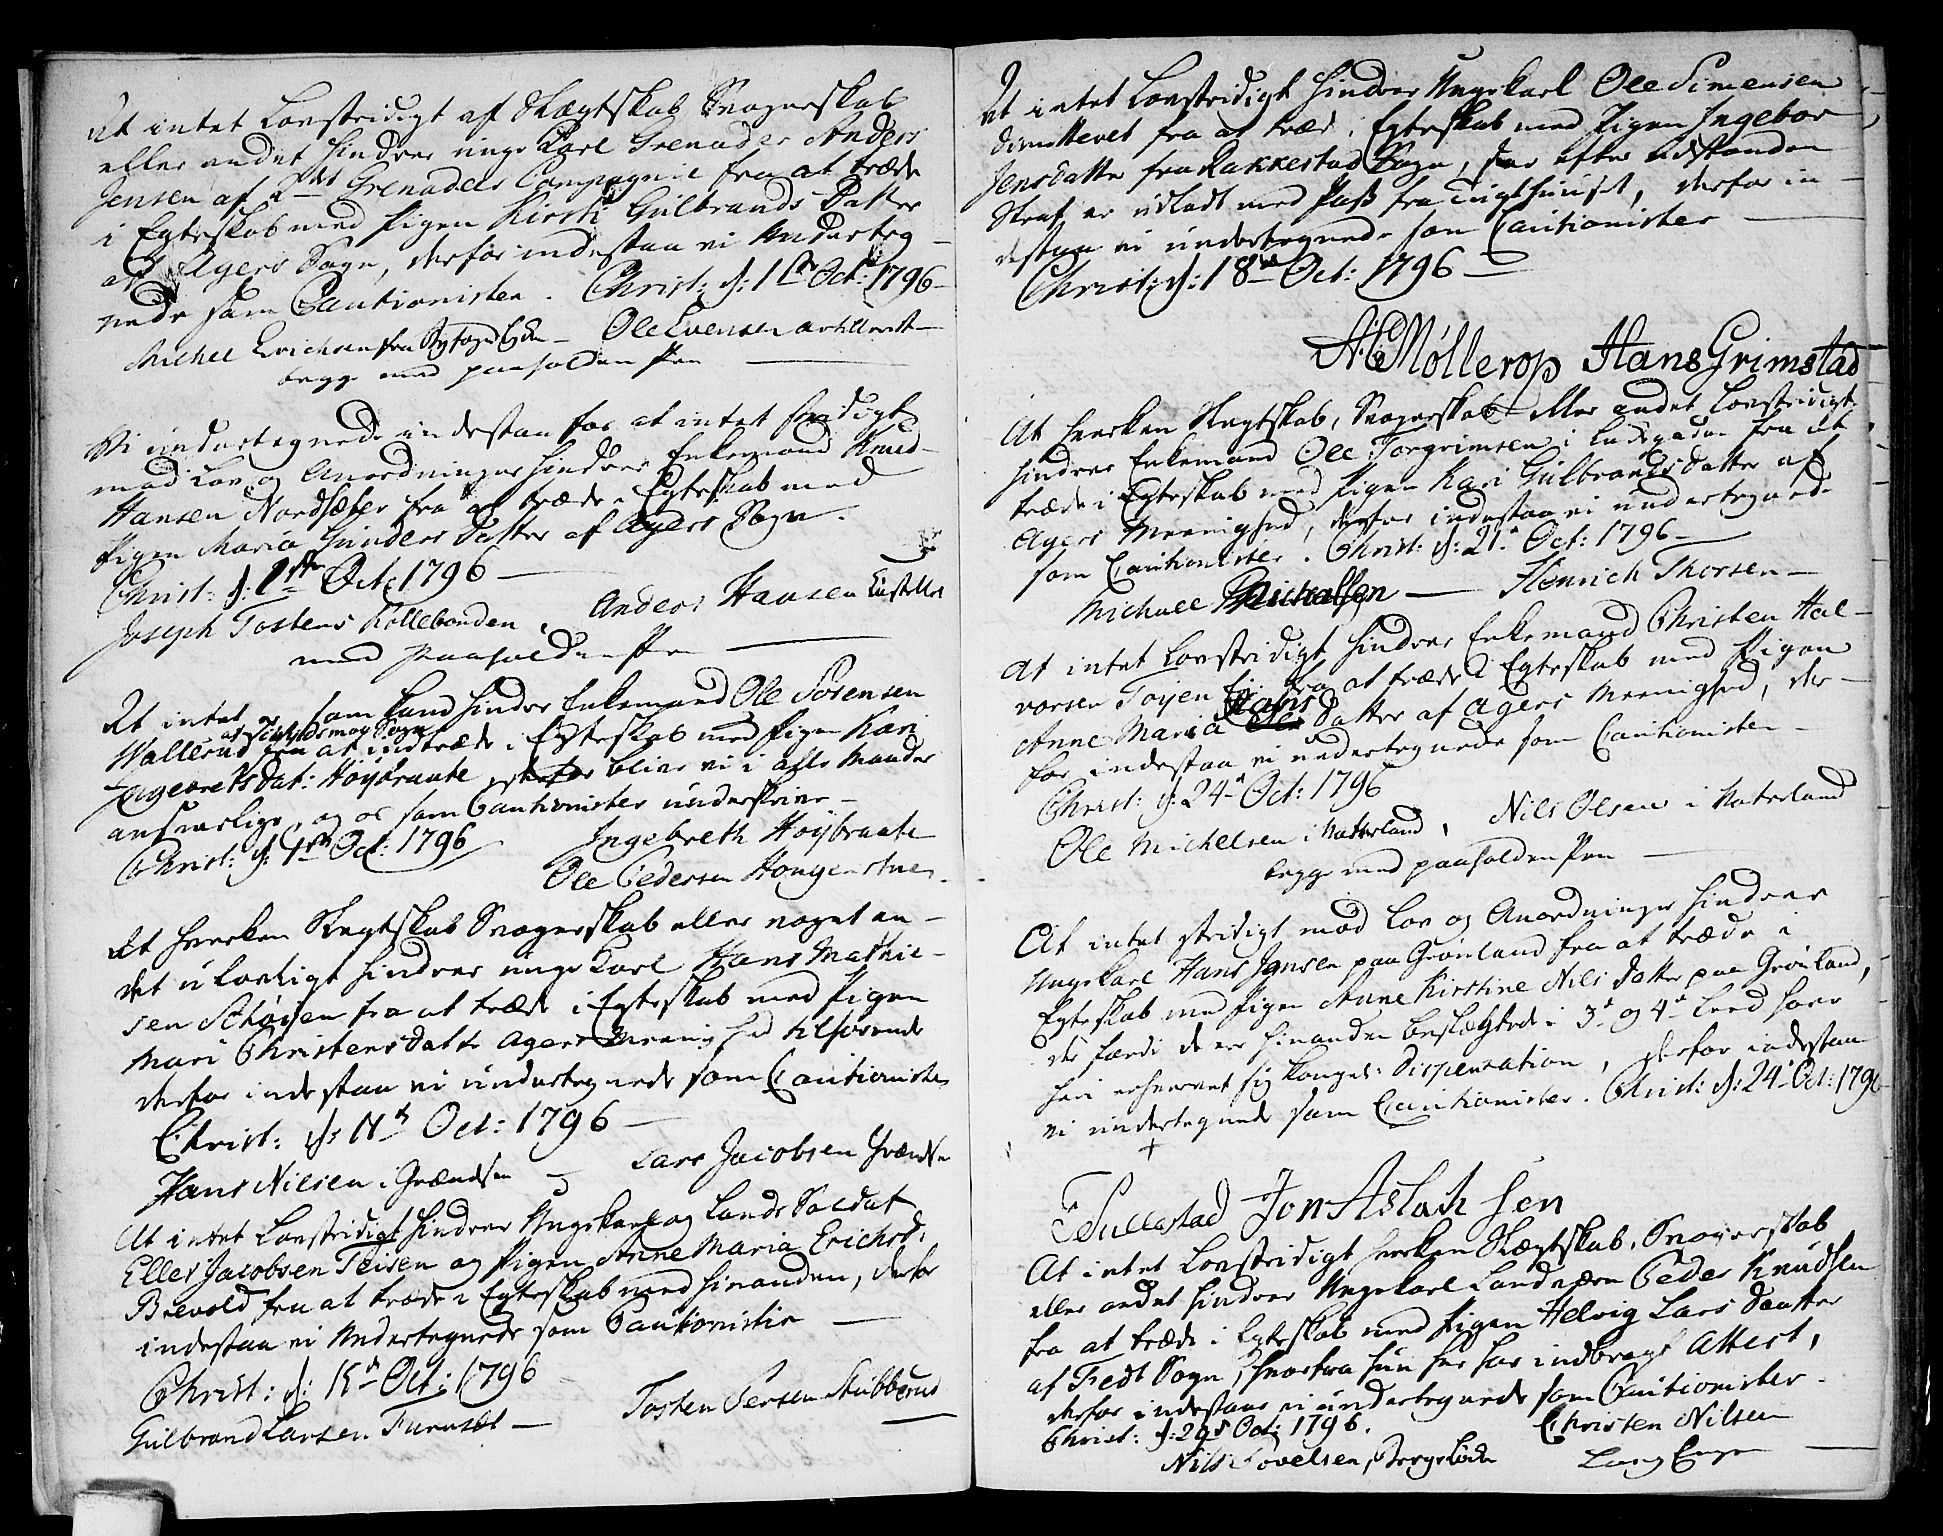 At intet Lovstridigt af Slægtskab Svogerskab
eller andet hindrer unge Karl Grenadeer Anders
Jensen af 2det Grenadeer Compagnie fra at træde
i Egteskab med Pigen Kirsti Gulbrands Datter
af Agers Sogn, derfor indestaa vi Underteg-
nede som Cautionister. Christ: d: 1ste Oct: 1796
Michel Erichsen fra Ole Evensen artillerist
begge med paaholden Pen
Vi undertegnede indestaa for at intet stridigt
mod Lov og Anordninger hindrer Enkemand Knud
Hansen Nordsæter fra at træde i Egteskab med
Pigen Maria Gunders Datter af Agers Sogn.
Christ: d: 1ste Oct: 1796
Joseph Tostens Kollebonden, Anders Hansen
med paaholden Pen
At intet som kand hindre Enkemand Ole Sørensen
Wallerud fra at indtræde i Egteskab med Pigen Kari
Ingebretsdat: Høybraate, derfor blive vi i alle Maader
ansvarlige, og os som Cautionister underskrive
Christ: d: Oct: 1796 Ingebreth Høybraate
Ole Pedersen Hougenstue
At hverken Slegtskab Svogerskab eller noget an-
det ulovligt hindrer unge Karl Hans Mathie-
sen Schøyen fra at træde i Egteskab med Pigen
Mari Christensdatt: Agers Menighed tilhørende
derfor indestaa vi undertegnede som Cautionister
Christ: d: 11te Oct: 1796
Hans Nilsen i Grændsen Lars Jacobsen Grændsen
At intet Lovstridigt hindrer Ungekarl og Land Soldat
Eller Jacobsen Teisen og Pigen Anne Maria Erichsd:
Brevold fra at træde i Egteskab med hinanden, derfor
indestaa vi Undertegnede som Cautionister
Christ: d: 15de Oct: 1796
Gulbrand Larsen Furuset Tosten Persen Stubberud
At intet Lovstridigt hindrer Ungekarl Ole Simensen
fra at træde i Egteskab med Pigen Ingebor
Jensdatter fra Rakkestad Sogn, som efter udstanden
Straf er udladt med Pass fra Tugthuuset, derfor in-
destaa vi undertegnede som Cautionister
Christ: d: 18de Oct: 1796
Møllerop Hans Grimstad
At hverken Slegtskab, Svogerskab eller andet Lovstridigt
hindrer Enkemand Ole Torgrimsen i fra at
træde i Egteskab med Pigen Kari Gulbrands Datter af
Agers Meenighed, derfor indestaa vi undertegnede
som Cautionister. Christ: d: 21de Oct: 1796
Michael Michalsen Henrich Thorsen
At intet Lovstridigt hindrer Enkemand Christen Hal-
vorsen Tøyen fra at træde i Egteskab med Pigen
Anne Maria Hans Datter af Agers Meenighed, der-
for indestaa vi undertegnede som Cautionister
Christ: d: 24de Oct: 1796
Ole Michelsen i Vatterland, Nils Olsen i Vaterland
begge med paaholden Pen
At intet stridigt mod Lov og Anordninger hindrer
Ungekarl Hans Jensen paa Grønland fra at træde i
Egteskab med Pigen Anne Kirstine Nils Datter paa Grønland,
de fordi de er hinanden beslægtede i 3de og 4de Leed have
hver erhvervet sig kongel: Dispensation, derfor indestaa
vi undertegnede som Cautionister. Christ: d: 24de Oct: 1796
Tullestad Jon Aslachsen
At intet Lovstridigt hverken Slægtskab, Svogerskab
eller andet hindrer Ungekarl Landværn Peder Knudsen
fra at træde i Egteskab med Pigen Helvig Lars Daatter
af Fedt Sogn, hvorfra hun her har indbragt Attest,
derfor indestaae vi undertegnede som Cautionister.
Christ: d: 29de Oct: 1796. Christen Nilsen
Nils Povelsen,